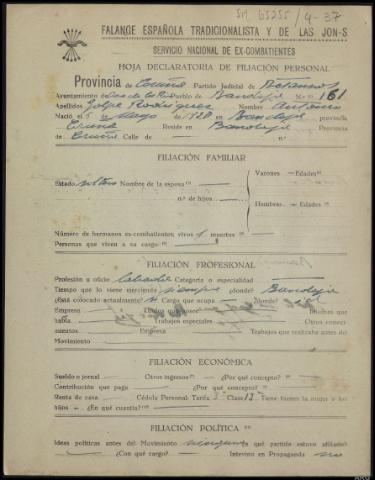 SM 65255/4-37
FALANGE ESPAÑOLA TRADICIONALISTA Y DE LAS JON-S
SERVICIO NACIONAL DE EX-COMBATIENTES
HOJA DECLARATORIA DE FILIACIÓN PERSONAL
Provincia de Coruña Partido Judicial de Betanzos
Ayuntamiento de Pueblo de Bandoja N.º 161
Apellidos Golpe Rodríguez Nombre Antonio
Nació el 5 de Mayo de 1920 en Bandoja provincia
Coruña Reside en Bandoja provincia de
Coruña Calle de — n.º
FILIACIÓN FAMILIAR
Estado soltero Nombre de la esposa — Varones —Edades
n.º de hijos Hembras —Edades
Número de hermanos ex-combatientes, vivos 1 muertos —
Personas que viven a su cargo
FILIACIÓN PROFESIONAL
Profesión u oficio labrador Categoría o especialidad
Tiempo que lo viene ejerciendo siempre ¿dónde? Bandoja
¿Está colocado actualmente? si Cargo que ocupa — ¿dónde? id
Empresa Idiomas que
habla Trabajos especiales Otros conoci-
mientos Empresa Trabajos que realizaba antes del
Movimiento
FILIACIÓN ECONÓMICA
Sueldo o jornal — Otros ingresos — ¿Por qué concepto? —
Contribución que paga — ¿Por qué concepto? —
Renta de casa — Cédula Personal: Tarifa 3ª Clase 13 Tiene bienes la mujer o los
hijos — ¿En qué cuantía?
FILIACIÓN POLÍTICA
Ideas políticas antes del Movimiento ninguna ¿a qué partido estuvo afiliado?
— ¿Con qué cargo? — Intervino en Propaganda no